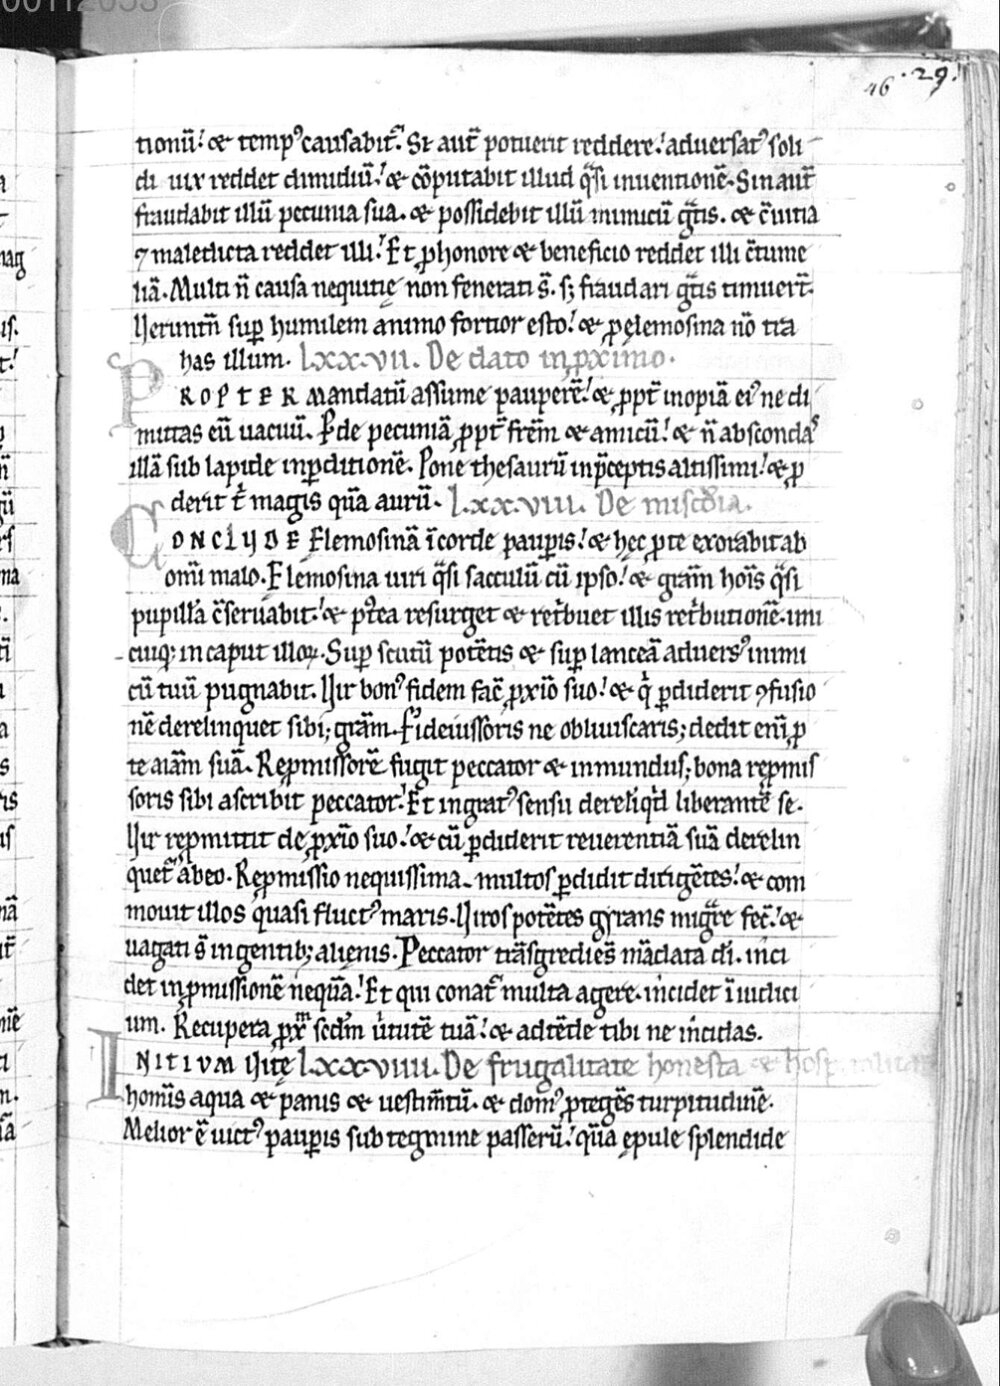 00112053
46 · 29 ·
tionū! & temp⁹ causabit᷑. Si aut̄ potuerit reddere! aduersat᷑ soli
di uix reddet dimidiū! & cōputabit illud q̄si inuentionē. Sin aut̄
fraudabit illū pecunia sua. & possidebit illū inimicū gͣtis. & c̄uitia
⁊ maledicta reddet illi! Et ꝓ honore & beneficio reddet illi c̄tume
liā. Multi n̄ causa nequitię non fenerati s̄. s; fraudari gͣtis timuer̄t.
Ueruntn̄ suꝑ humilem animo fortior esto! & ꝓ ęlemosina nō tra
has illum. lxx.vii. De dato in ꝓximo.
PROPTER Mandatū assume pauperē! & ꝓpt̄ inopiā ei⁹ ne di
mittas eū uacuū. Pde pecuniā ꝓpt̄ frēm & amicū! & n̄ abscondas
illā sub lapide in ꝑditionē. Pone thesaurū in p̄ceptis altissimi! & ꝓ
derit t̄ magis quā aurū. lxx.viii. De miscd̄ia.
CONCLUDE Elemosinā ī corde pauꝑis! & hęc ꝓ te exorabit ab
om̄i malo. Elemosina uiri q̄si sacculū cū ipso! & gram̄ hoīs q̄si
pupillā c̄seruabit! & p̄tea resurget & ret̄buet illis ret̄butionē. uni
cuiq; in caput illoꝝ. Suꝑ scutū potētis & suꝑ lanceā aduers⁹ inimi
cū tuū pugnabit. Uir bon⁹ fidem fac̄ ꝓxīo suo! & q̇ ꝑdiderit ꝯfusio
nē derelinquet sibi; grām. Fideiussoris ne obliuiscaris; dedit eni ꝓ
te aīam suā. Reꝓmissorē fugit peccator & inmundus; bona reꝓmis
soris sibi ascribit peccator! Et ingrat⁹ sensu derelīqd̄ liberantē se.
Uir reꝓmittit de ꝓxīo suo! & cū ꝑdiderit reuerentiā suā derelin
quet᷑ ab eo. Reꝓmissio nequissima multos ꝑdidit dirigētes! & com
mouit illos quasi fluct⁹ maris. Uiros potētes gyrans migͣre fec̄! &
uagati s̄ in gentib; alienis. Peccator trāsgrediēs mādata dī. inci
det in ꝓmissionē nequā! Et qui conat᷑ multa agere. incidet ī iudici
um. Recupera ꝓx̄ scdm̄ ūtutē tuā! & adtēde tibi ne incidas.
INITIUM Uitę lxx.viiii. De frugalitate honesta & hospitalitate
hominis aqua & panis & uestim̄tū. & dom⁹ ꝓtegēs turpitudinē.
Melior ē uict⁹ pauꝑis sub tegmine asserū! quā ępule splendide